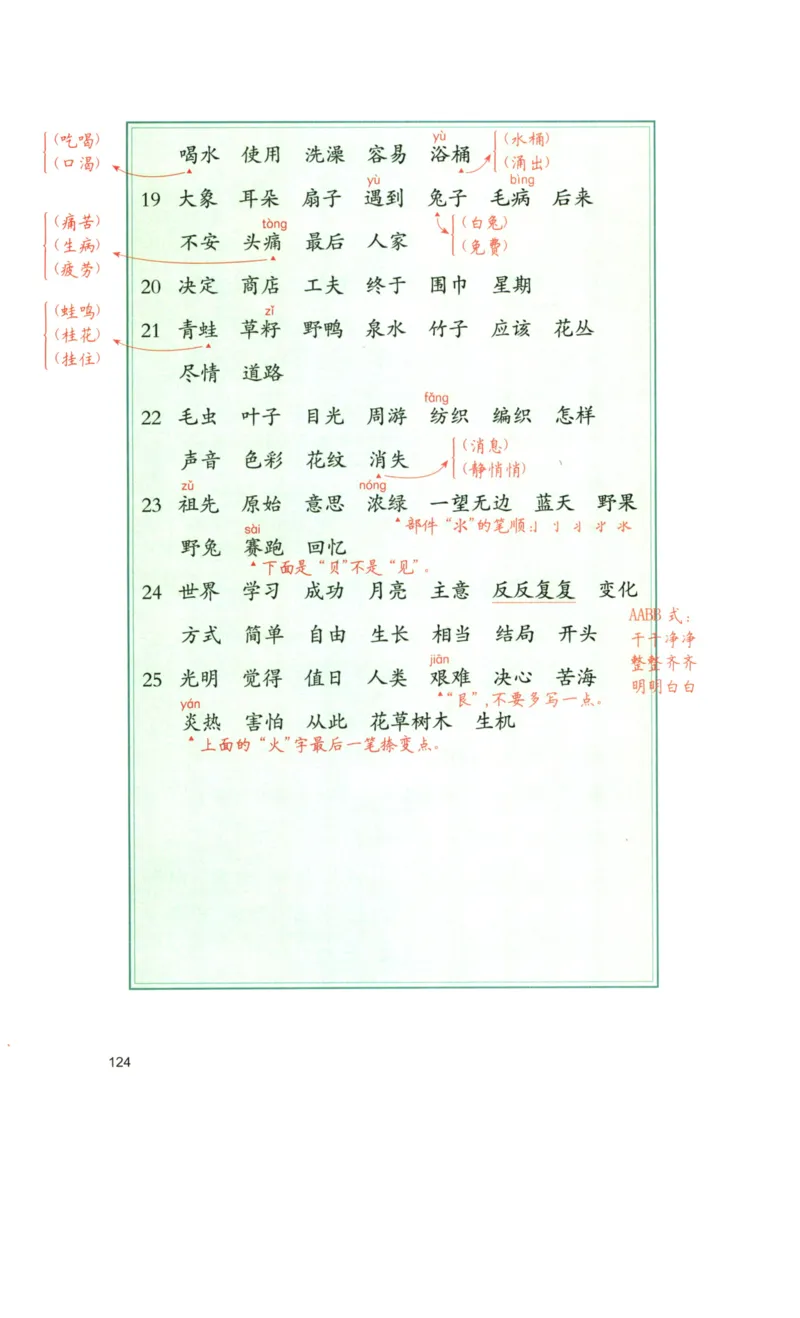 (吃喝)
(口渴)
yù
(水桶)
(涌出)
喝水 使用 洗澡 容易 浴桶
yù bìng
19 大象 耳朵 扇子 遇到 兔子 毛病 后来
(痛苦)
(生病)
(疲劳)
tòng
(白兔)
(免费)
不安 头痛 最后 人家
20 决定 商店 工夫 终于 围巾 星期
(蛙鸣)
(桂花)
(挂住)
zǐ
21 青蛙 草籽 野鸭 泉水 竹子 应该 花丛
尽情 道路
fǎng
22 毛虫 叶子 目光 周游 纺织 编织 怎样
(消息)
(静悄悄)
声音 色彩 花纹 消失
zǔ nóng
23 祖先 原始 意思 浓绿 一望无边 蓝天 野果
sài
野兔 赛跑 回忆
下面是“贝”不是“见”。
24 世界 学习 成功 月亮 主意 反反复复 变化
AABB 式:
干干净净
整整齐齐
明明白白
方式 简单 自由 生长 相当 结局 开头
jiān
25 光明 觉得 值日 人类 艰难 决心 苦海
“艮”,不要多写一点。
yán
炎热 害怕 从此 花草树木 生机
上面的“火”字最后一笔捺变点。
124